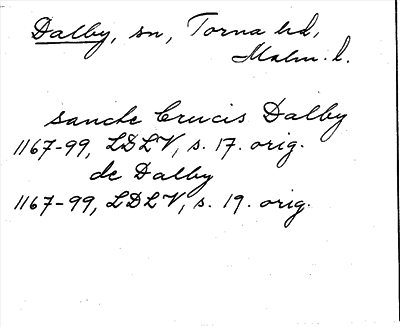 Dalby, sn, Torna hd,
Malm. l.
sancte Crucis Dalby
1167-99, LDLV, s. 17. orig.
de Dalby
1167-99, LDLV, s. 19. orig.